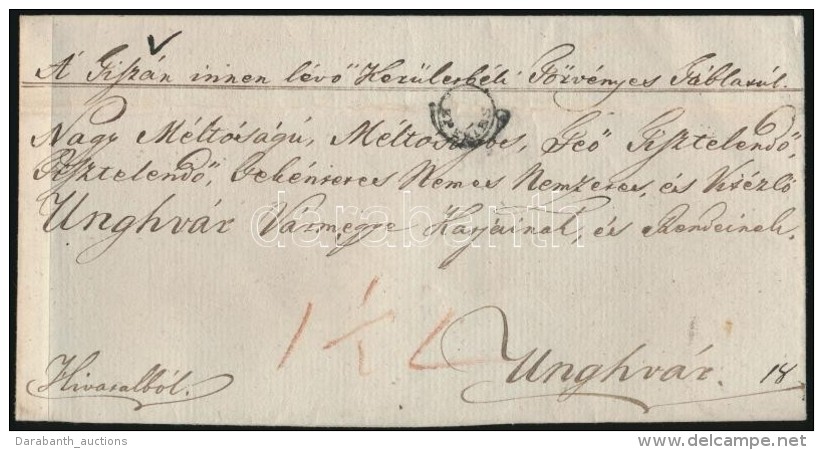 A Tiszán innen lévő Kerületbéli Törvényes Táblatúl.
EPERIES
Nagy Méltóságú, Méltoságos, Feő Tisztelendő,
Tisztelendő, Tekéntetes Nemes Nemzetes, és Vitézlő
Unghvár Vármegye Karjainak, és Rendeinek.
darabanth
1½ L
Hivatalból.
Unghvár. 18
Darabanth_auctions
www.delcampe.net